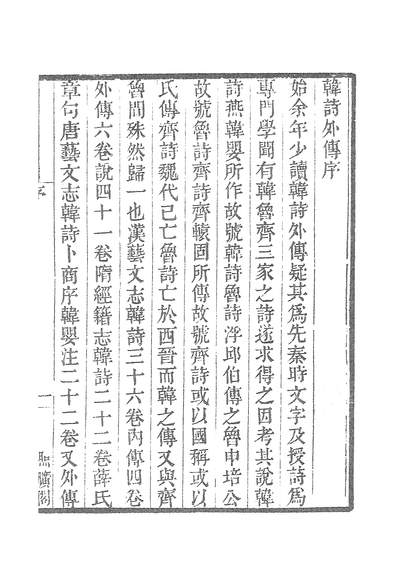 韓詩外傳序
始余年少讀韓詩外傳疑其爲先秦時文字及授詩爲
專門學聞有韓魯齊三家之詩遂求得之因考其說韓
詩燕韓嬰所作故號韓詩魯詩浮邱伯傳之魯申培公
故號魯詩齊詩齊轅固所傳故號齊詩或以國稱或以
氏傳齊詩魏代已亡魯詩亡於西晉而韓之傳又與齊
魯間殊然歸一也漢藝文志韓詩三十六卷內傳四卷
外傳六卷說四十一卷隋經籍志韓詩二十二卷薛氏
章句唐藝文志韓詩卜商序韓嬰注二十二卷又外傳
序
一
照曠閣